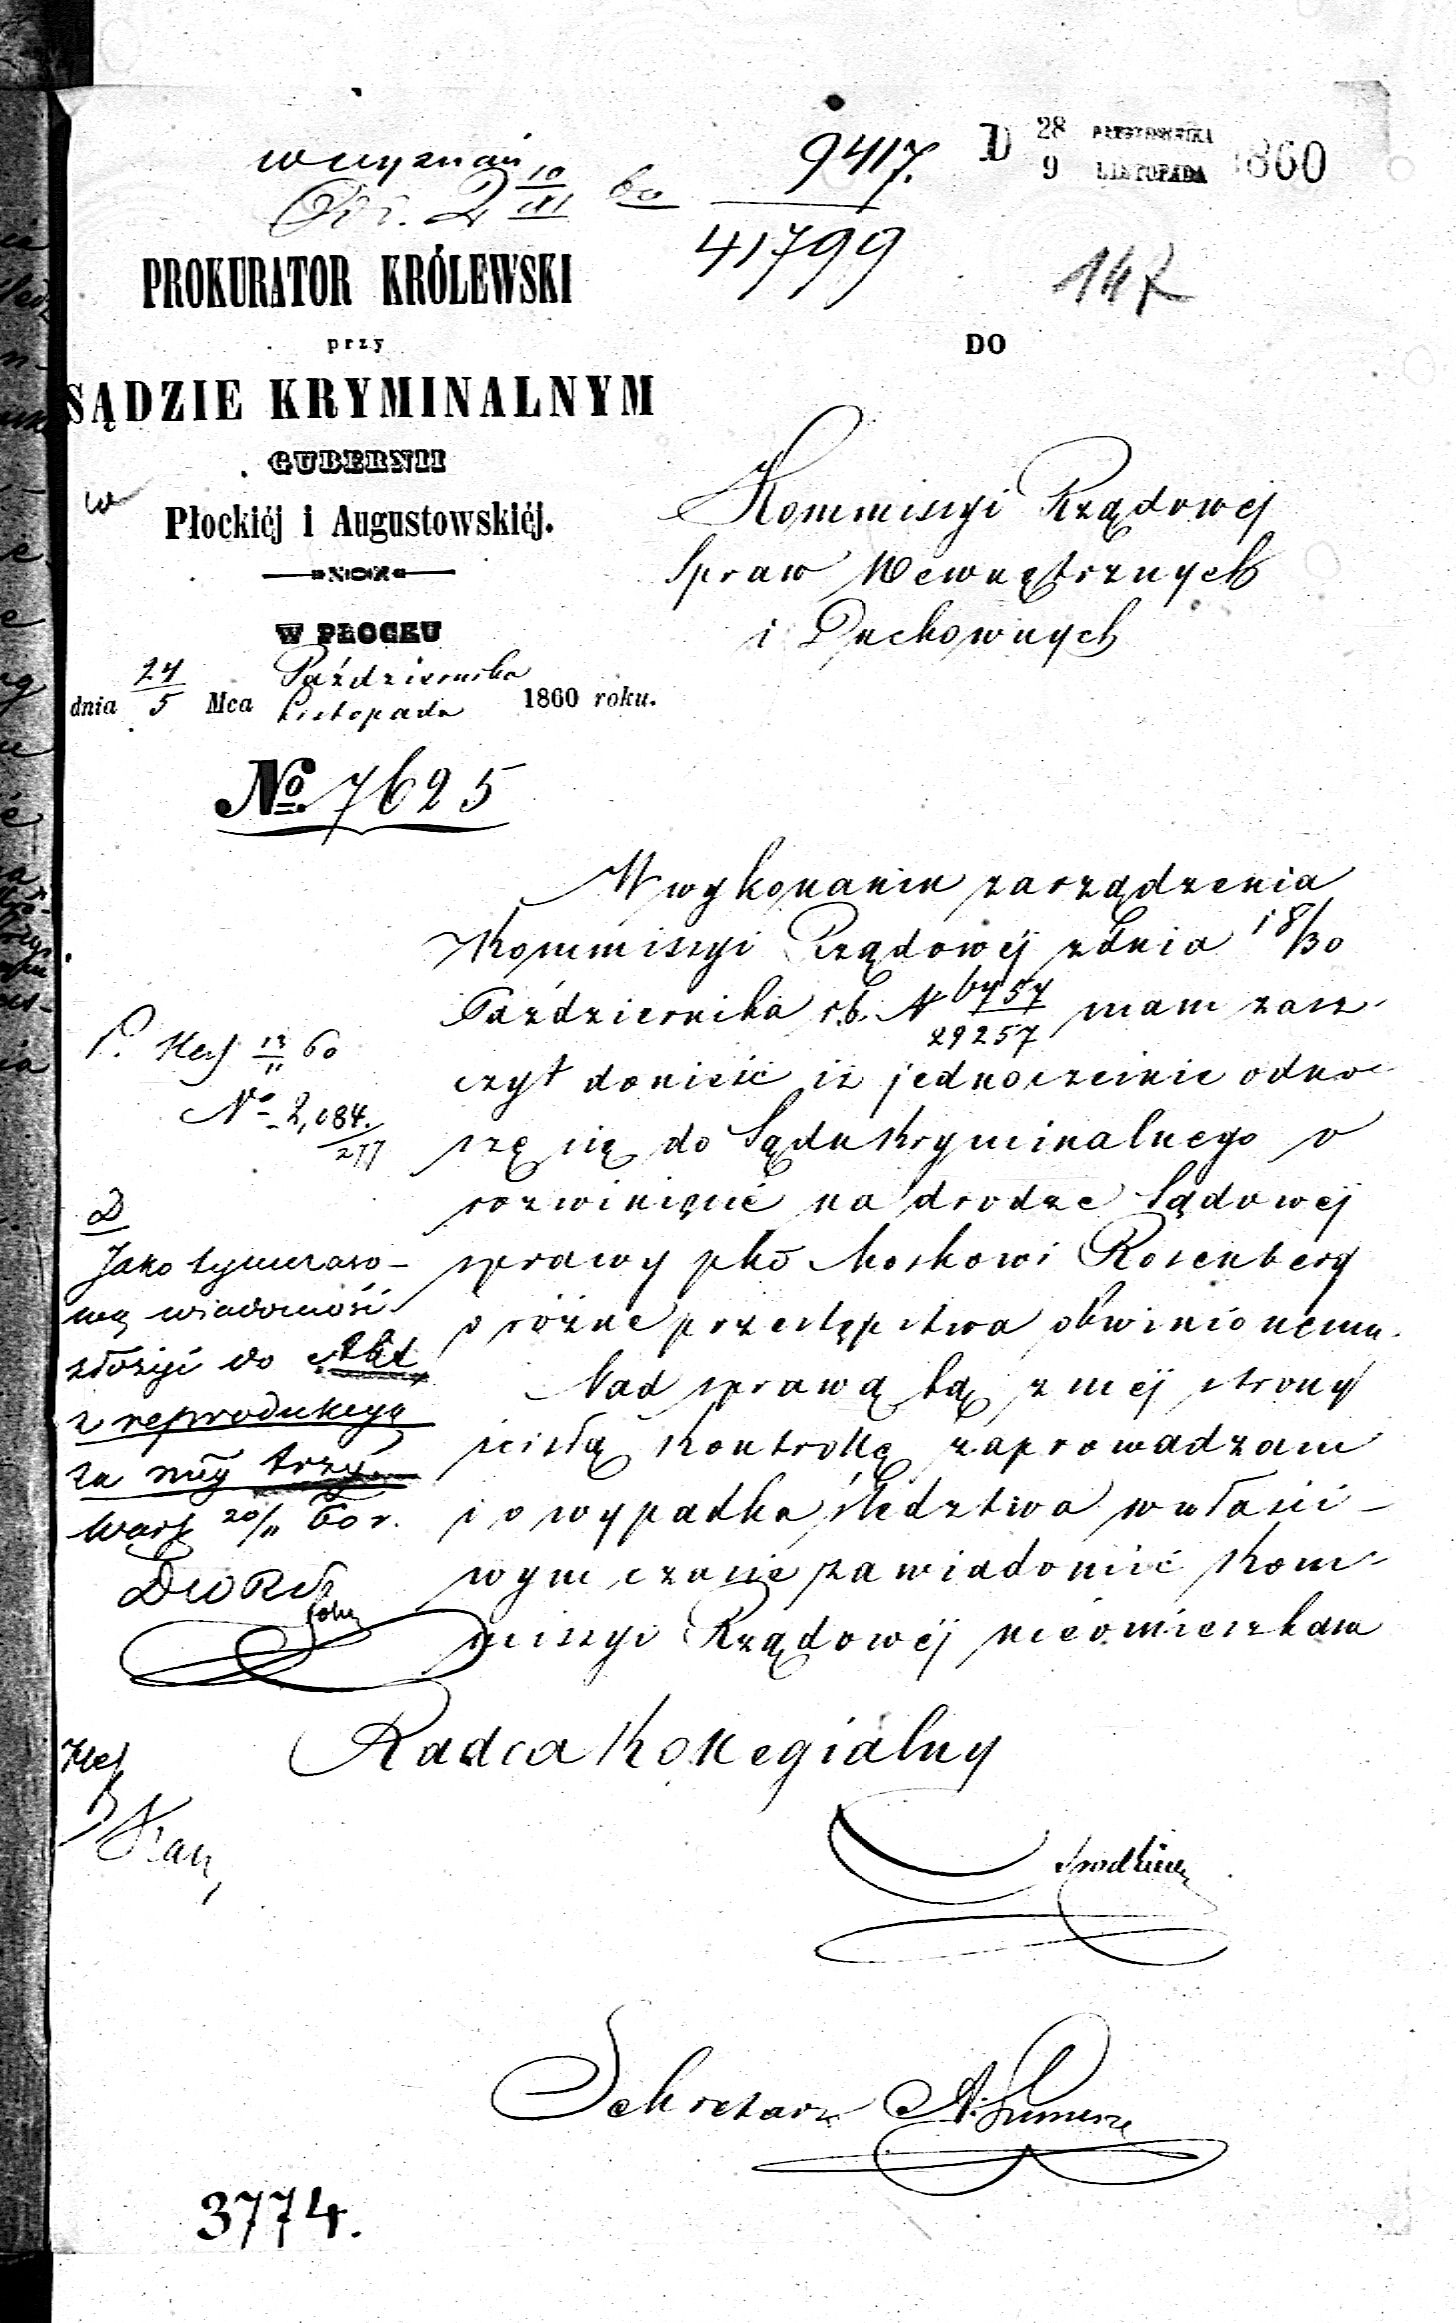 w wyznań
9417.
41799
D 28 PAŹDZIERNIKA
9 LISTOPADA 1860
147
PROKURATOR KRÓLEWSKI
przy
SĄDZIE KRYMINALNYM
GUBERNII
Płockiéj i Augustowskiéj.
W PŁOCKU
dnia 24/5 Mca Października
Listopada 1860 roku.
№ 7625
DO
Kommissyi Rządowéj
Spraw Wewnętrznych
i Duchownych
W wykonaniu zarządzenia
Kommissyi Rządowéj z dnia 18/30
Października r.b. N 6757/29257 mam zasz-
czyt donieść iż jednocześnie odno-
szę się do Sądu Kryminalnego o
rozwinięcie na drodze Sądowéj
sprawy pko Moskowi Rosenberg
o różne przestępstwa obwinionemu.
Nad sprawą tą z méj strony
ścisłą kontrollę zaprowadzam
i o wypadku śledztwa w właści-
wym czasie zawiadomić Kom-
missyi Rządowéj nieomieszkam
Radca Kollegialny
Sekretarz
№ 2,084.
D
Jako tymczaso-
wą wiadomość
złożyć do Akt
z reprodukcyą
za mcy trzy
Warsz 20/11 60 r.
3774.